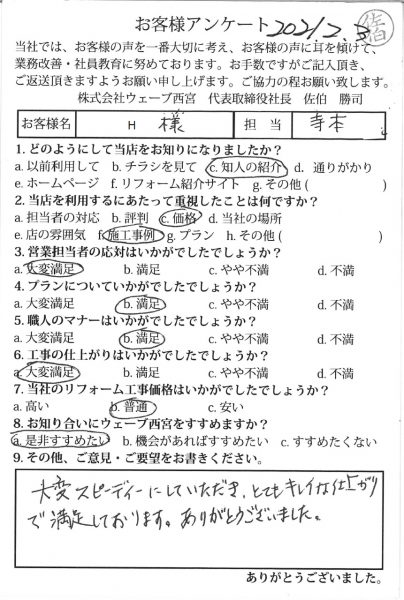 お客様アンケート 2021.2.3 佐伯
当社では、お客様の声を一番大切に考え、お客様の声に耳を傾けて、
業務改善・社員教育に努めております。お手数ですがご記入頂き、
ご返送頂きますようお願い申し上げます。ご協力の程お願い致します。
株式会社ウェーブ西宮 代表取締役社長 佐伯 勝司
お客様名 H 様 担 当 寺本
1. どのようにして当店をお知りになりましたか?
a. 以前利用して b. チラシを見て c. 知人の紹介 d. 通りがかり
e. ホームページ f. リフォーム紹介サイト g. その他 ( )
2. 当店を利用するにあたって重視したことは何ですか?
a. 担当者の対応 b. 評判 c. 価格 d. 当社の場所
e. 店の雰囲気 f. 施工事例 g. プラン h. その他 ( )
3. 営業担当者の応対はいかがでしたでしょうか?
a. 大変満足 b. 満足 c. やや不満 d. 不満
4. プランについていかがでしたでしょうか?
a. 大変満足 b. 満足 c. やや不満 d. 不満
5. 職人のマナーはいかがでしたでしょうか?
a. 大変満足 b. 満足 c. やや不満 d. 不満
6. 工事の仕上がりはいかがでしたでしょうか?
a. 大変満足 b. 満足 c. やや不満 d. 不満
7. 当社のリフォーム工事価格はいかがでしたでしょうか?
a. 高い b. 普通 c. 安い
8. お知り合いにウェーブ西宮をすすめますか?
a. 是非すすめたい b. 機会があればすすめたい c. すすめたくない
9. その他、ご意見・ご要望をお書きください。
大変スピーディーにしていただき、とてもキレイな仕上がり
で満足しております。ありがとうございました。
ありがとうございました。